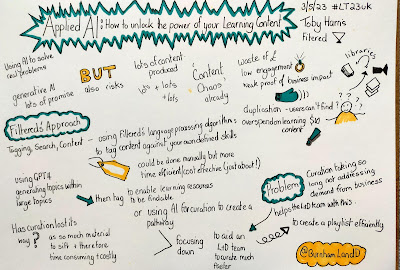 Applied AI: How to unlock the power of your Learning Content
3/5/23 #LT23uk
Toby Harris
Filtered
Using AI to solve
real problems
generative AI
lots of promise
BUT
also risks
lots of content
produced
lots + lots
+ lots
Content
Chaos
already
waste of £
low engagement
weak proof of business impact
libraries
duplication - users can't find
overspend on learning
content
Filtered's Approach
Tagging, Search, Content
using Filtered's language processing algorithms
to tag content against your own defined skills
could be done manually but more
time efficient/cost effective (just about!)
using GPT4
generating topics within
large topics
then tag
to enable learning resources
to be findable
or using AI for curation to create a
pathway
Problem
Curation taking so
long not addressing
demand from business
helps the L&D team with this
to create a playlist efficiently
Has curation lost its
way?
as so much material
to sift + therefore
time consuming + costly
focusing
down
to aid an
L&D team
to curate much
faster
@BurnhamLandD